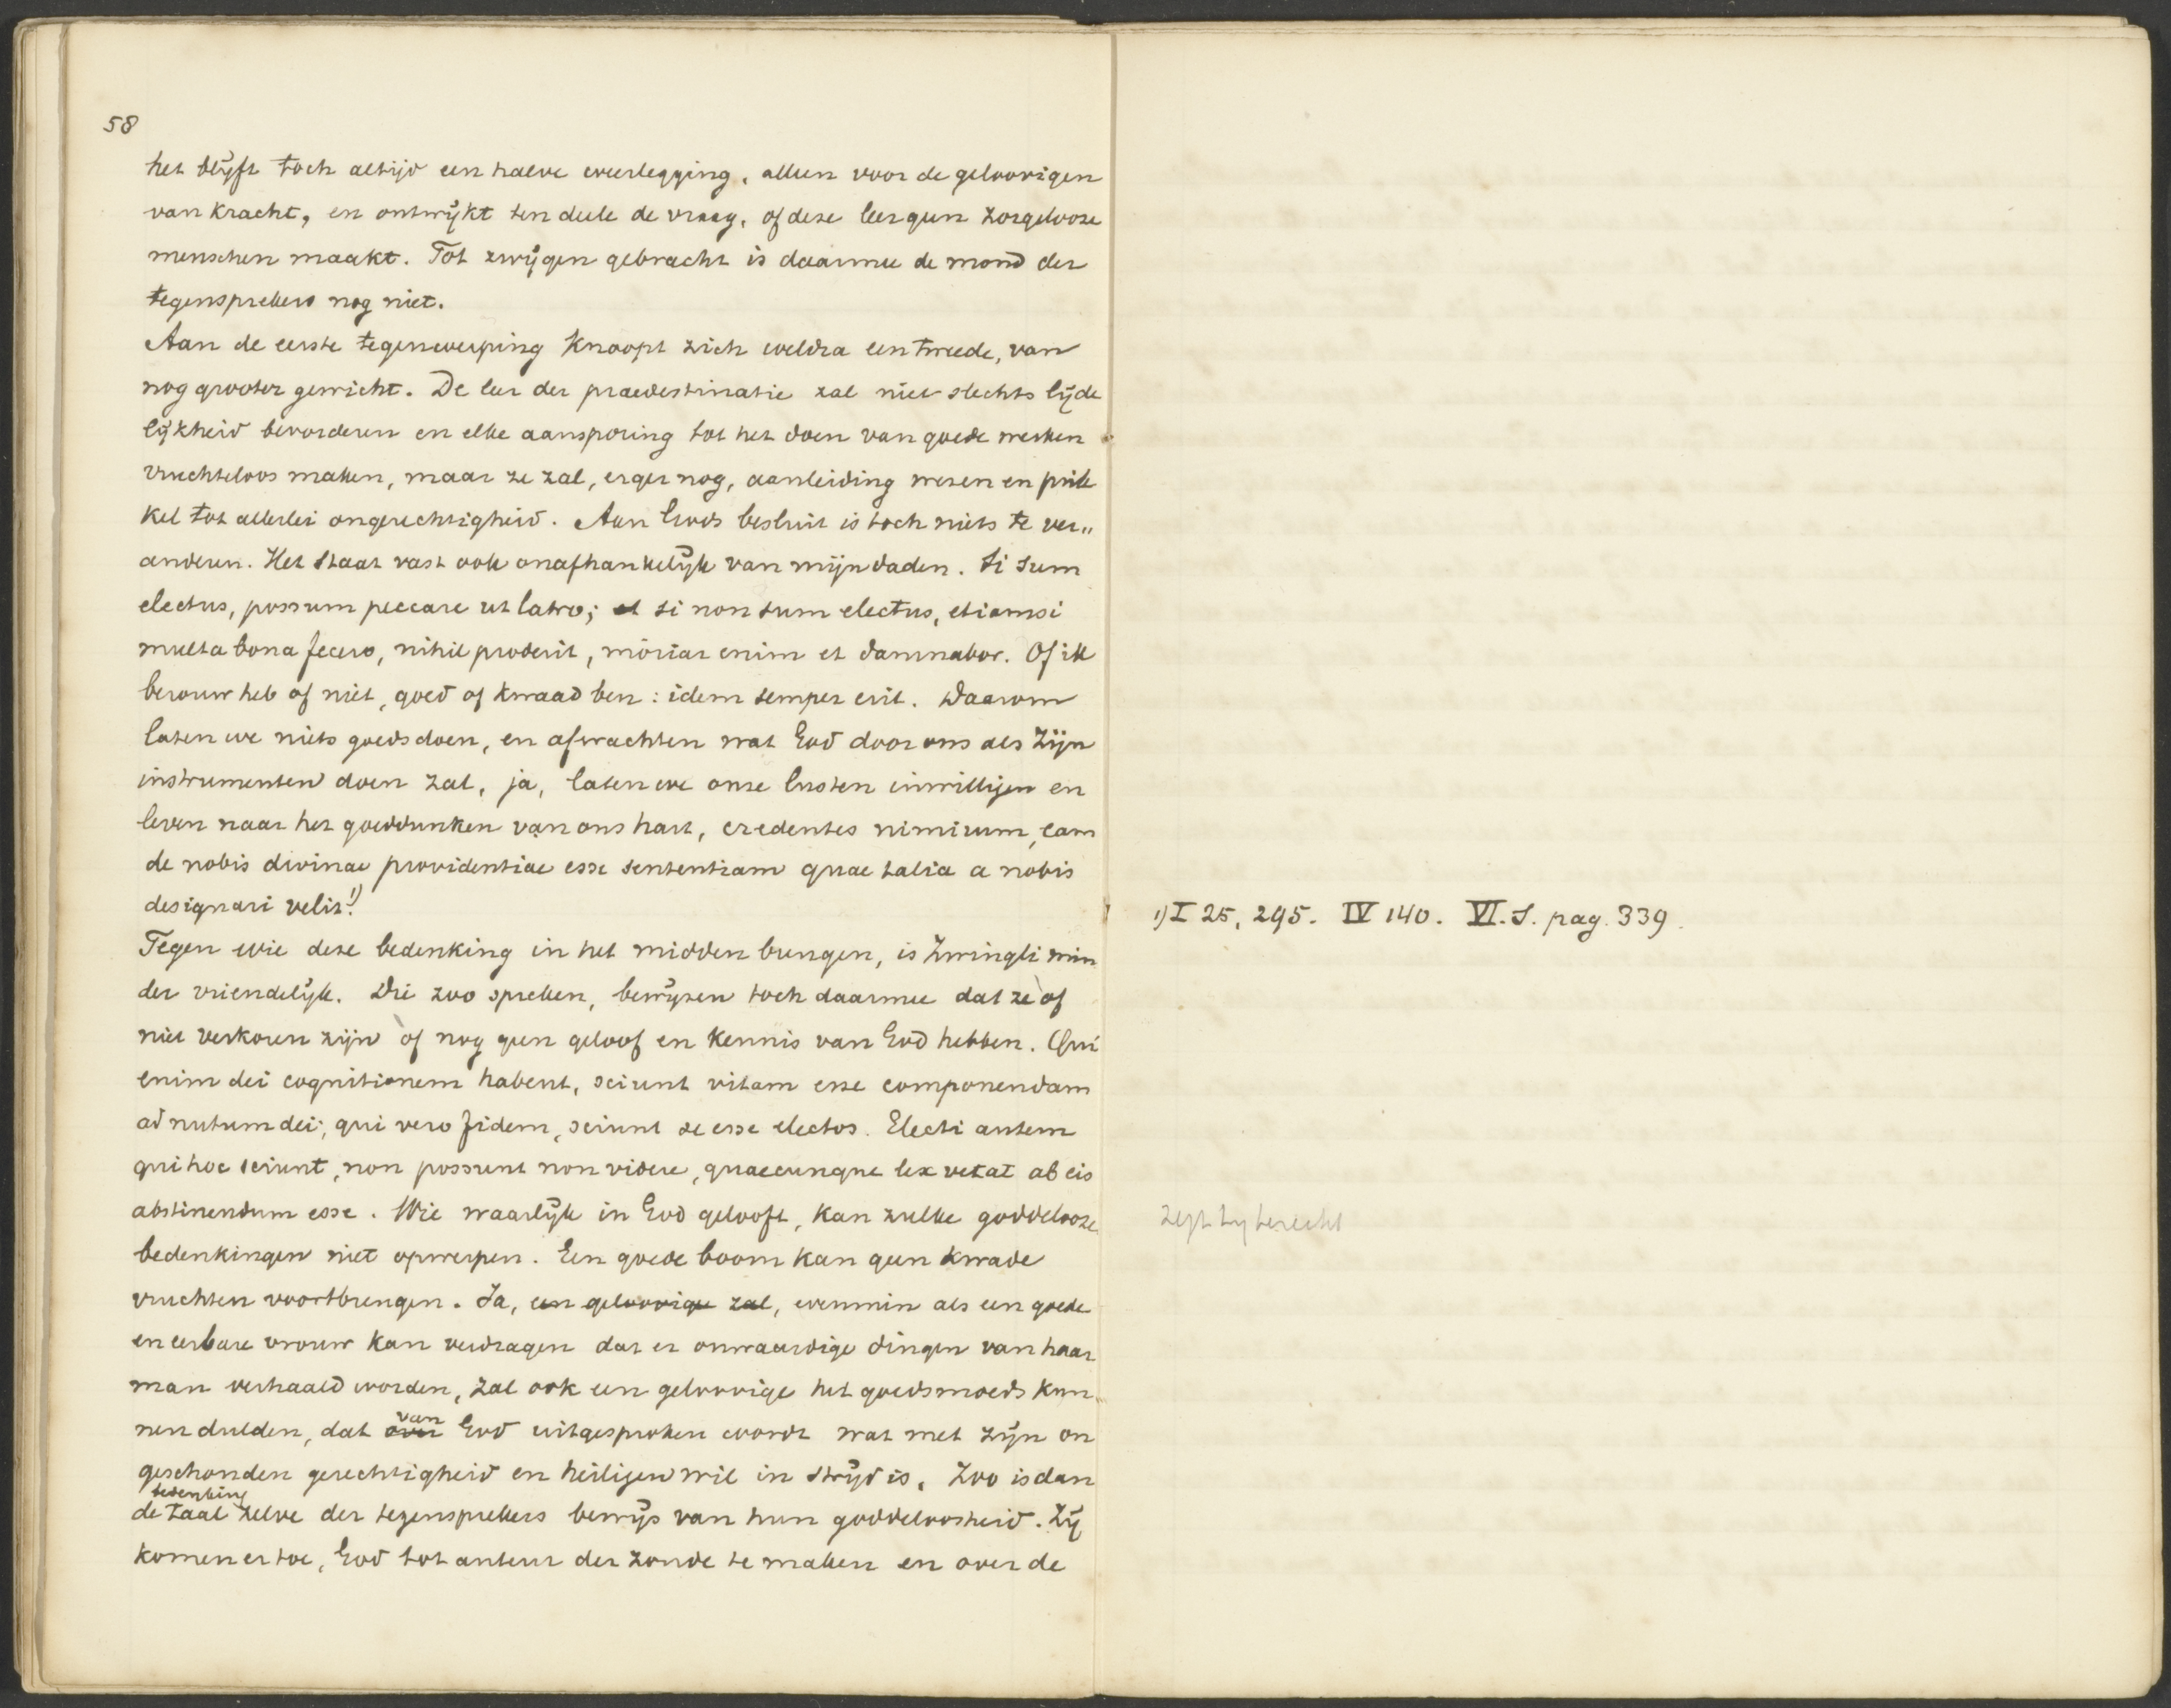 58
het blijft toch altijd een halve weerlegging, alleen voor de geloovigen
van kracht, en ontwijkt ten deele de vraag, of deze leer geen zorgelooze
menschen maakt. Tot zwijgen gebracht is daarmee de mond der
tegensprekers nog niet.
Aan de eerste tegenwerping knoopt zich weldra een tweede, van
nog grooter gewicht. De leer der praedestinatie zal niet slechts lijde
lijkheid bevorderen en elke aansporing tot het doen van goede werken
vruchteloos maken, maar ze zal, erger nog, aanleiding wezen en prik
kel tot allerlei ongerechtigheid. Aan Gods besluit is toch niets te ver„
anderen. Het staat vast ook onafhankelijk van mijn daden. Si sum
electus, possum peccare ut latro; et si non sum electus, etiamsi
multa bona fecero, nihil proderit, moriar enim et damnabor. Of ik
berouw heb of niet, goed of kwaad ben: idem semper erit. Daarom
laten we niets goeds doen, en afwachten wat God door ons als Zijn
instrumenten doen zal, ja, laten we onze lusten inwilligen en
leven naar het goeddunken van ons hart, credentes nimirum, eam
de nobis divinae providentiae esse sententiam quae talia a nobis
designari velit! 1)
Tegen wie deze bedenking in het midden brengen, is Zwingli min
der vriendelijk. Die zoo spreken, bewijzen toch daarmee dat ze òf
niet verkoren zijn òf nog geen geloof en kennis van God hebben. Qui
enim dei cognitionem habent, sciunt vitam esse componendam
ad nutum dei; qui vero fidem, sciunt se esse electos. Electi autem
qui hoc sciunt, non possunt non videre, quaecunque lex vetat ab eis
abstinendum esse. Wie waarlijk in God gelooft, kan zulke goddelooze
bedenkingen niet opwerpen. Een goede boom kan geen kwade
vruchten voortbrengen. Ja, een geloovige zal, evenmin als een goede
en eerbare vrouw kan verdragen dat er onwaardige dingen van haar
man verhaald worden, zal ook een geloovige het goedsmoeds kun
nen dulden, dat over van God uitgesproken wordt wat met zijn on
geschonden gerechtigheid en heiligen wil in strijd is. Zoo is dan
bedenking
de taal zelve der tegensprekers bewijs van hun goddeloosheid. Zij
komen er toe, God tot auteur der zonde te maken en over de
1) I 25, 295. IV 140. VI. S. pag. 339.
zegt hy terecht